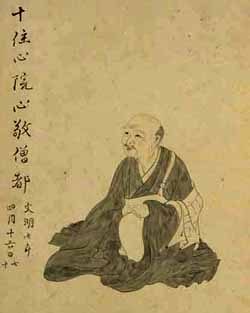 十住心院心敬僧都
文明七年
四月十六日七十